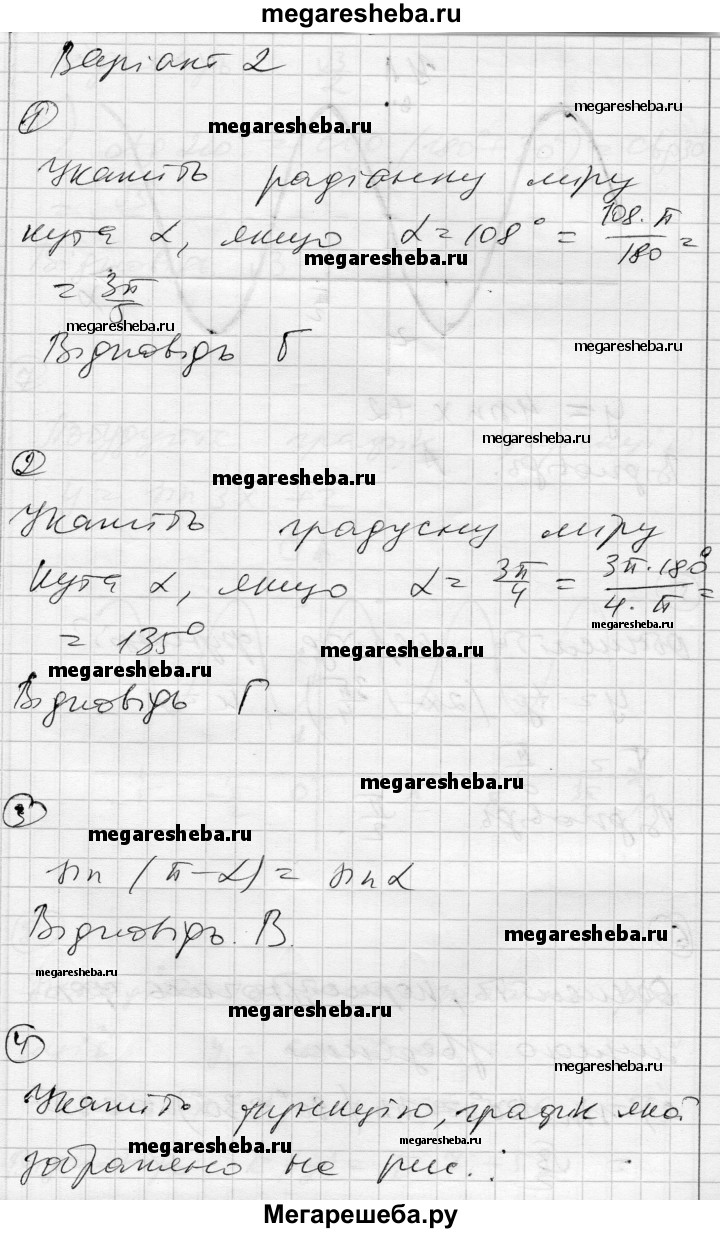 megaresheba.ru
Варіант 2
megaresheba.ru
1
megaresheba.ru
Укажіть радіанну міру
кута α, якщо α = 108° = 108·π/180 =
megaresheba.ru
megaresheba.ru
= 3π/5
megaresheba.ru
Відповідь Б
megaresheba.ru
megaresheba.ru
2
megaresheba.ru
Укажіть градусну міру
кута α, якщо α = 3π/4 = 3π·180°/4·π =
megaresheba.ru
= 135°
megaresheba.ru
megaresheba.ru
Відповідь Г.
megaresheba.ru
3
megaresheba.ru
sin (π-α) = sin α
Відповідь. В.
megaresheba.ru
megaresheba.ru
megaresheba.ru
4
megaresheba.ru
Укажіть функцію, графік якої
megaresheba.ru
megaresheba.ru
зображено на рис.:
Мегарешеба.ру